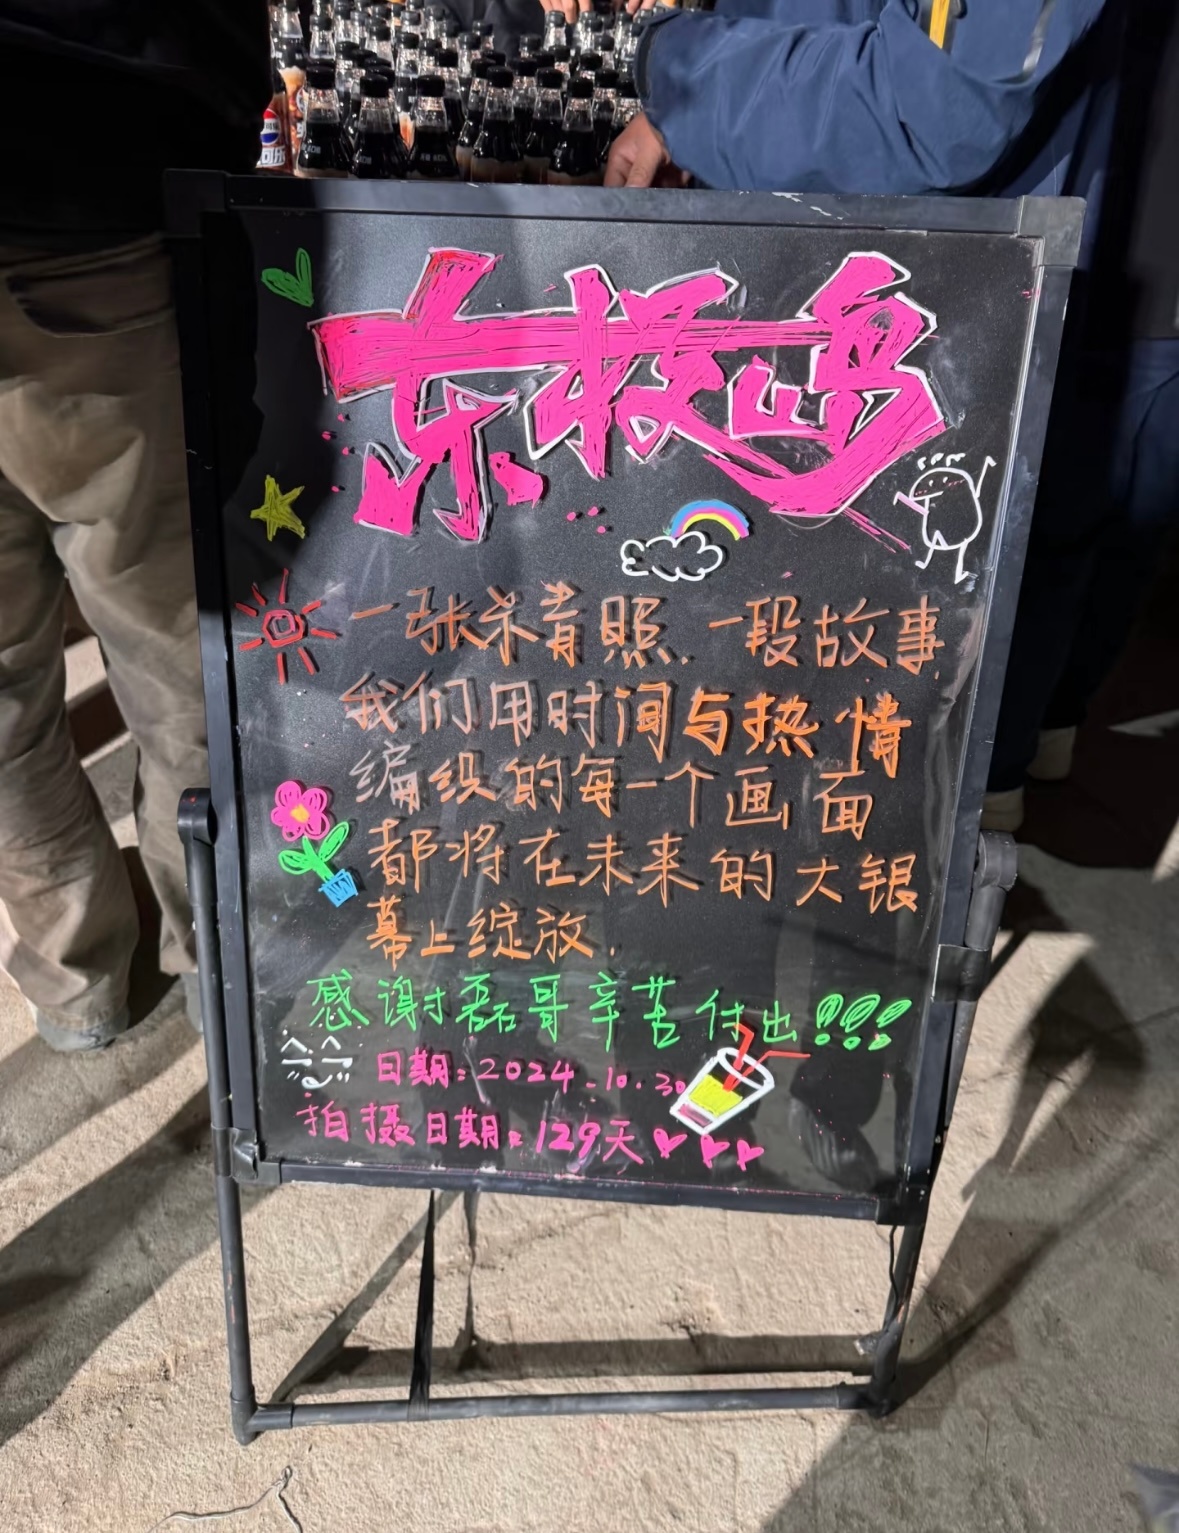 可乐
东极岛
一张杀青照. 一段故事.
我们用时间与热情
编织的每一个画面
都将在未来的大银
幕上绽放.
感谢磊哥辛苦付出!!!
日期:2024.10.30
拍摄日期:129天